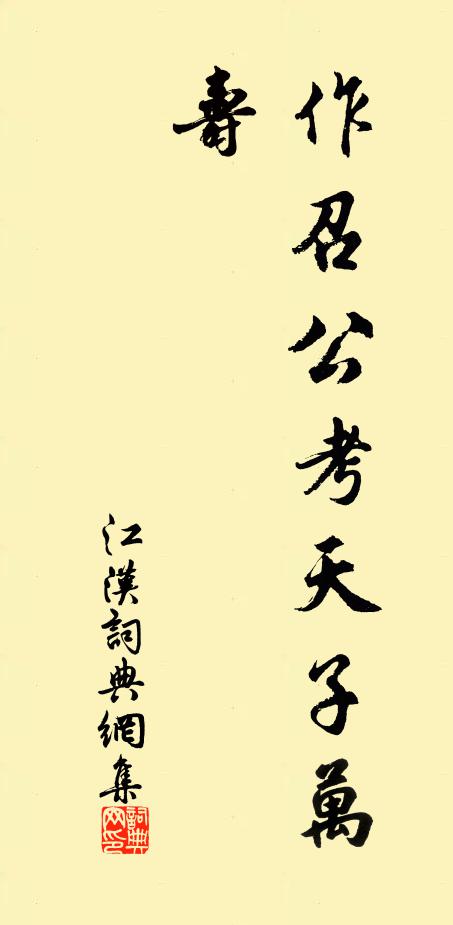 作召公考天子萬
壽
江漢詞典網集
詞典网印